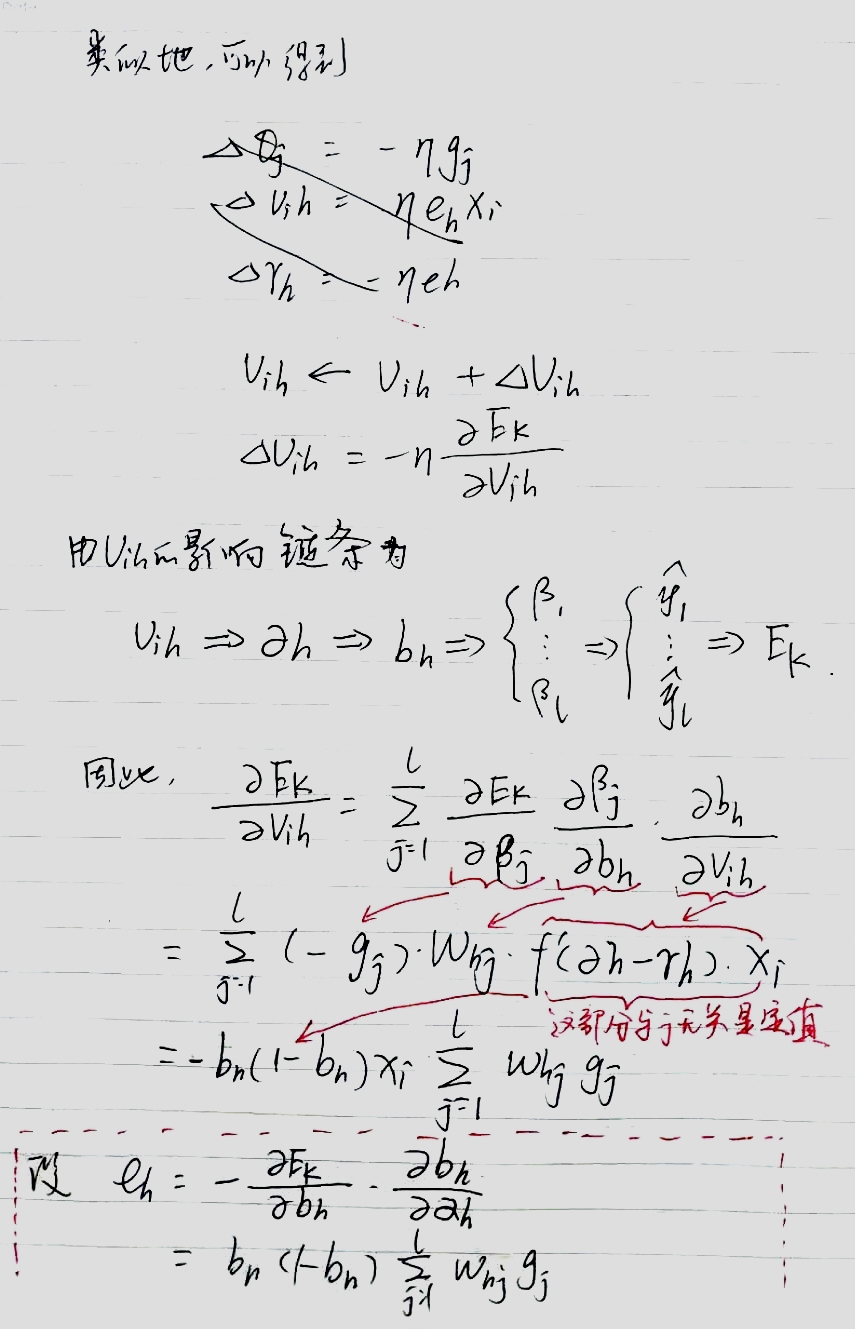 类似地，可以得到
Δθj = - ηgj
Δvih = ηehxi
Δγh = -ηeh
vih ← vih + Δvih
Δvih = -η ∂Ek/∂vih
由vih的影响链条为
vih ⇒ ∂h ⇒ bh ⇒ { β1 ⋮ βl ⇒ { ŷ1 ⋮ ŷl ⇒ Ek.
因此， ∂Ek/∂vih = Σ_{j=1}^{l} ∂Ek/∂βj ∂βj/∂bh · ∂bh/∂vih
= Σ_{j=1}^{l} (-gj)·Whj·f'(∂h-γh)·xi
这部分与j无关是定值
= -bh(1-bh)xi Σ_{j=1}^{l} whj gj
设 eh = - ∂Ek/∂bh · ∂bh/∂∂h
= bh(1-bh) Σ_{j=1}^{l} whj gj